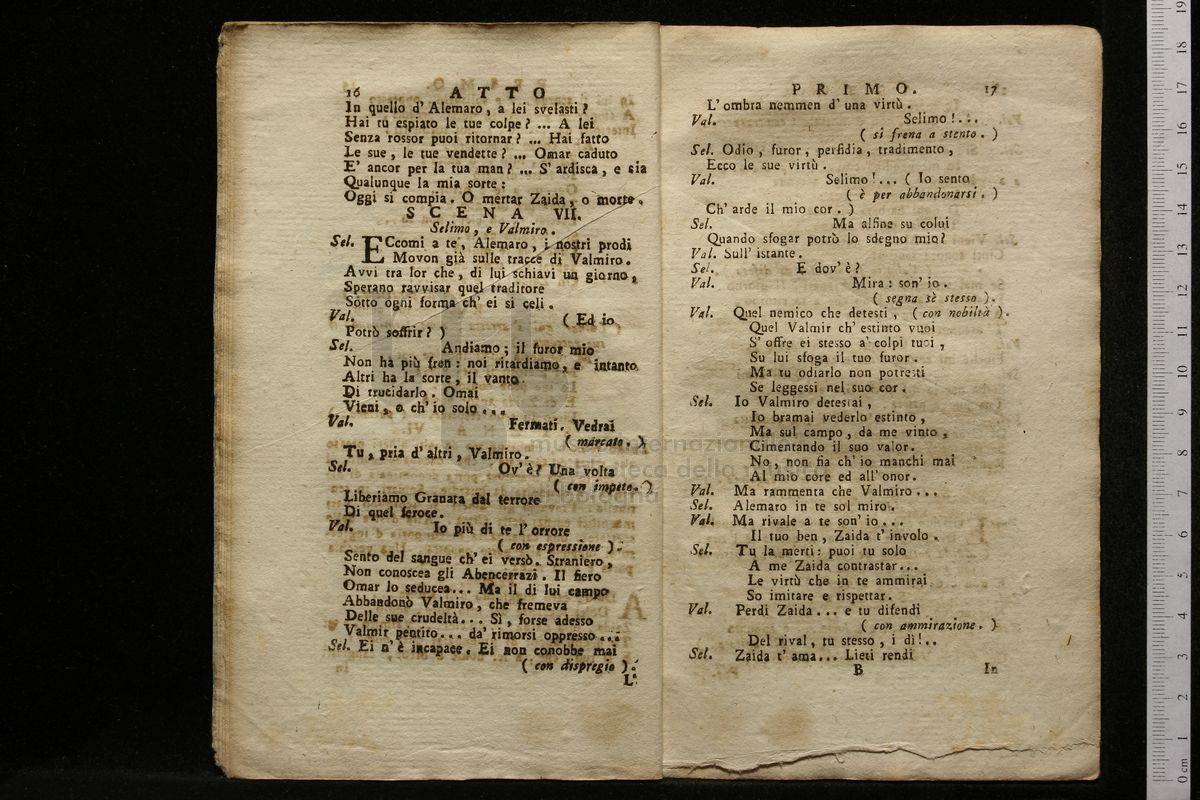 16 ATTO
In quello d' Alemaro, a lei svelasti?
Hai tu espiato le tue colpe? ... A lei
Senza rossor puoi ritornar? ... Hai fatto
Le sue, le tue vendette? ... Omar caduto
E' ancor per la tua man? ... S' ardisca, e sia
Qualunque la mia sorte:
Oggi si compia. O mertar Zaida, o morte.
SCENA VII.
Selimo, e Valmiro.
Sel. ECcomi a te, Alemaro, i nostri prodi
Movon già sulle tracce di Valmiro.
Avvi tra lor che, di lui schiavi un giorno,
Sperano ravvisar quel traditore
Sotto ogni forma ch' ei si celi.
Val. ( Ed io
Potrò soffrir? )
Sel. Andiamo; il furor mio
Non ha più fren: noi ritardiamo, e intanto
Altri ha la sorte, il vanto
Di trucidarlo. Omai
Vieni, o ch' io solo...
Val. Fermati. Vedrai
( marcato. )
Tu, pria d' altri, Valmiro.
Sel. Ov' è? Una volta
( con impeto. )
Liberiamo Granata dal terrore
Di quel feroce.
Val. Io più di te l' orrore
( con espressione ).
Sento del sangue ch' ei versò. Straniero,
Non conoscea gli Abencerrazi. Il fiero
Omar lo seducea... Ma il di lui campo
Abbandonò Valmiro, che fremeva
Delle sue crudeltà... Sì, forse adesso
Valmir pentito... da' rimorsi oppresso...
Sel. Ei n' è incapace. Ei non conobbe mai
( con dispregio ).
L'
PRIMO. 17
L' ombra nemmen d' una virtù.
Val. Selimo!...
( si frena a stento. )
Sel. Odio, furor, perfidia, tradimento,
Ecco le sue virtù.
Val. Selimo!... ( Io sento
( è per abbandonarsi. )
Ch' arde il mio cor. )
Sel. Ma alfine su colui
Quando sfogar potrò lo sdegno mio?
Val. Sull' istante.
Sel. E dov' è?
Val. Mira: son' io.
( segna sè stesso ).
Val. Quel nemico che detesti, ( con nobiltà ).
Quel Valmir ch' estinto vuoi
S' offre ei stesso a' colpi tuoi,
Su lui sfoga il tuo furor.
Ma tu odiarlo non potresti
Se leggessi nel suo cor.
Sel. Io Valmiro detestai,
Io bramai vederlo estinto,
Ma sul campo, da me vinto,
Cimentando il suo valor.
No, non fia ch' io manchi mai
Al mio core ed all' onor.
Val. Ma rammenta che Valmiro...
Sel. Alemaro in te sol miro.
Val. Ma rivale a te son' io...
Il tuo ben, Zaida t' involo.
Sel. Tu la merti: puoi tu solo
A me Zaida contrastar...
Le virtù che in te ammirai
So imitare e rispettar.
Val. Perdi Zaida... e tu difendi
( con ammirazione. )
Del rival, tu stesso, i dì!..
Sel. Zaida t' ama... Lieti rendi
B In